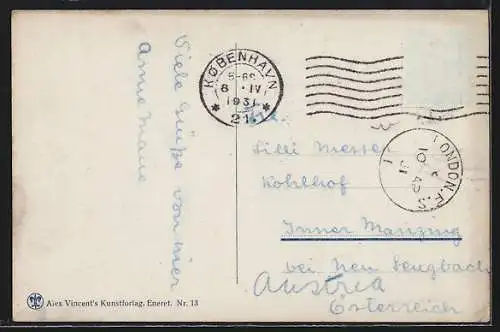 Viele Grüße von hier
Annemarie
KØBENHAVN
5-6
8 .IV.
1931
* 21. *
LONDON.F.S.
10
31
Lilli Messer
Kohlhof
Inner Manzing
bei Neu Lengbach
Austria
Österreich
Alex Vincent's Kunstforlag. Eneret. Nr. 13